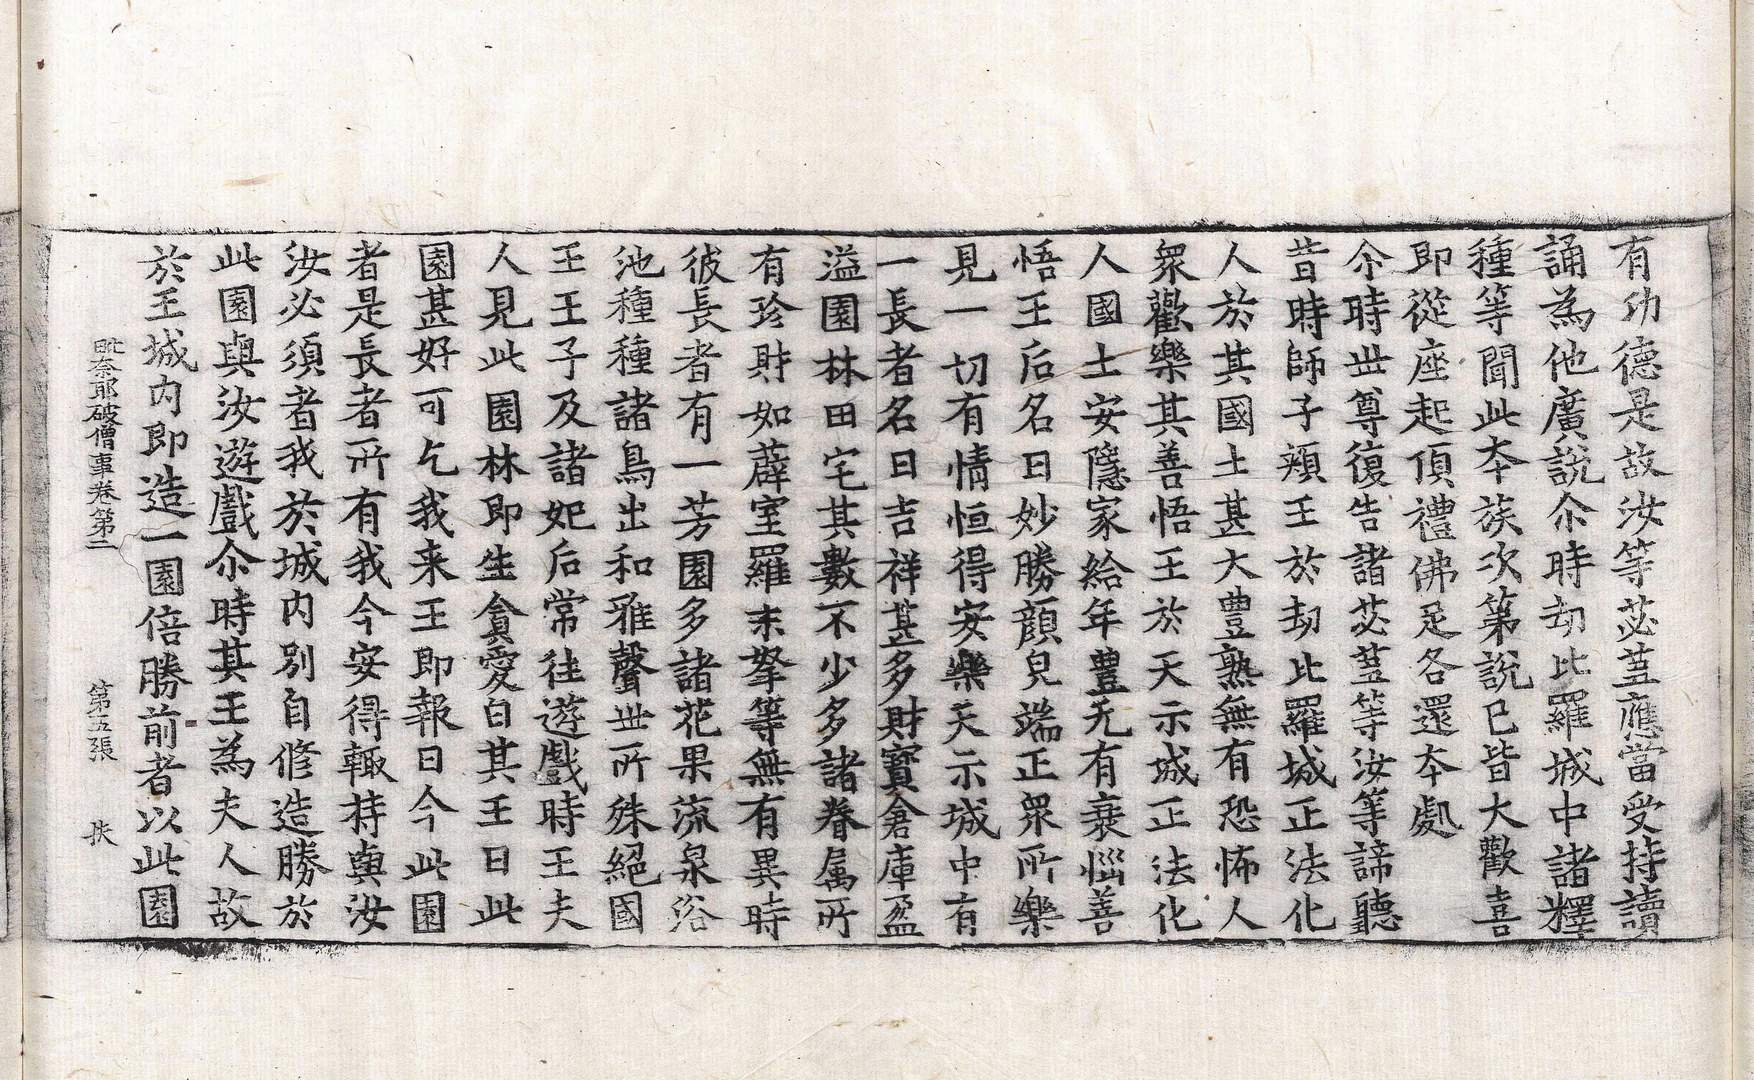 有功德是故汝等苾蒭應當受持讀
誦為他廣說尒時劫比羅城中諸釋
種等聞此夲族次第說已皆大歡喜
即從座起頂禮佛足各還夲處
尒時丗尊復告諸苾蒭等汝等諦聽
昔時師子頰王於劫比羅城正法化
人於其國土甚大豊熟無有恐怖人
衆歡樂其善悟王於天示城正法化
人國土安隱家給年豊无有衰惱善
悟王后名曰妙勝顔皃端正衆所樂
見一切有情恒得安樂天示城中有
一長者名曰吉祥甚多財寶倉庫盈
溢園林田宅其數不少多諸眷属所
有珍財如薜室羅末拏等無有異時
彼長者有一芳園多諸花果流泉浴
池種種諸鳥出和雅聲丗所殊絕國
王王子及諸妃后常往遊戲時王夫
人見此園林即生貪愛白其王曰此
園甚好可乞我来王即報曰今此園
者是長者所有我今安得輙持與汝
汝必須者我於城内別自修造勝於
此園與汝遊戲尒時其王為夫人故
於王城内即造一園倍勝前者以此園
毗奈耶破僧事卷第二 第五張 扶